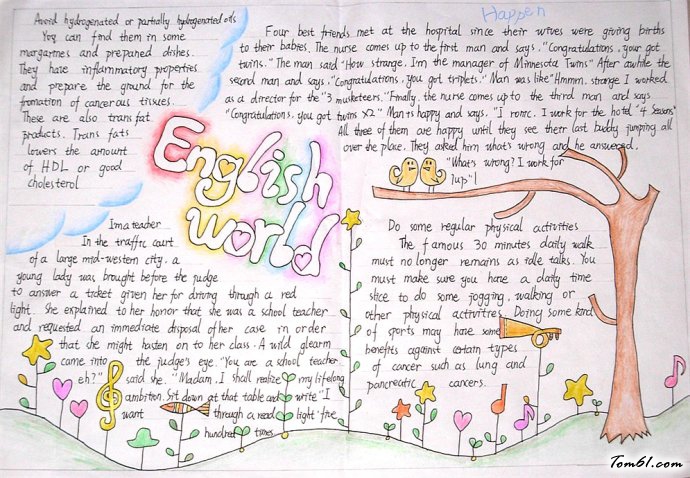 Avoid hydrogenated or partially hydrogenated oils
You can find them in some
margarines and prepared dishes.
They have inflammatory properties
and prepare the ground for the
fromation of cancerous tissues.
These are also trans fat
products. Trans fats
lowers the amount
of HDL or good
cholesterol
Happen
Four best friends met at the hospital since their wives were giving births
to their babies. The nurse comes up to the first man and says, "Congratulations, your got
twins." The man said "How strange. I'm the manager of Minnesota Twins" After awhile the
second man and says, "Congratulations, you got triplets." Man was like "Hmmm, strange I worked
as a director for the "3 musketeers." Finally, the nurse comes up to the third man and says
"Congratulations, you got twins X2" Man is happy and says, "I ronic. I work for the hotel "4 Seasons"
All three of them are happy until they see their last buddy jumping all
over the place. They asked him what's wrong and he answered,
"What's wrong? I work for
7up"!
English
world
I'm a teacher
In the traffic court
of a large mid-western city, a
young lady was brought before the judge
to answer a ticket given her for driving through a red
light. She explained to her honor that she was a school teacher
and requested an immediate disposal of her case in order
that she might hasten on to her class. A wild glearm
came into the judge's eye. "You are a school teacher,
eh?" said she. "Madam, I shall realize my lifelong
ambition. Sit down at that table and write "I
want through a read light 'five
hundred times.
Do some regular physical activities
The famous 30 minutes daily walk
must no longer remains as idle talks. You
must make sure you have a daily time
slice to do some jogging, walking or
other physical activitres. Doing some kind
of sports may have some
benefits against certain types
of cancer such as lung and
pancreatic cancers.
Tom61.com